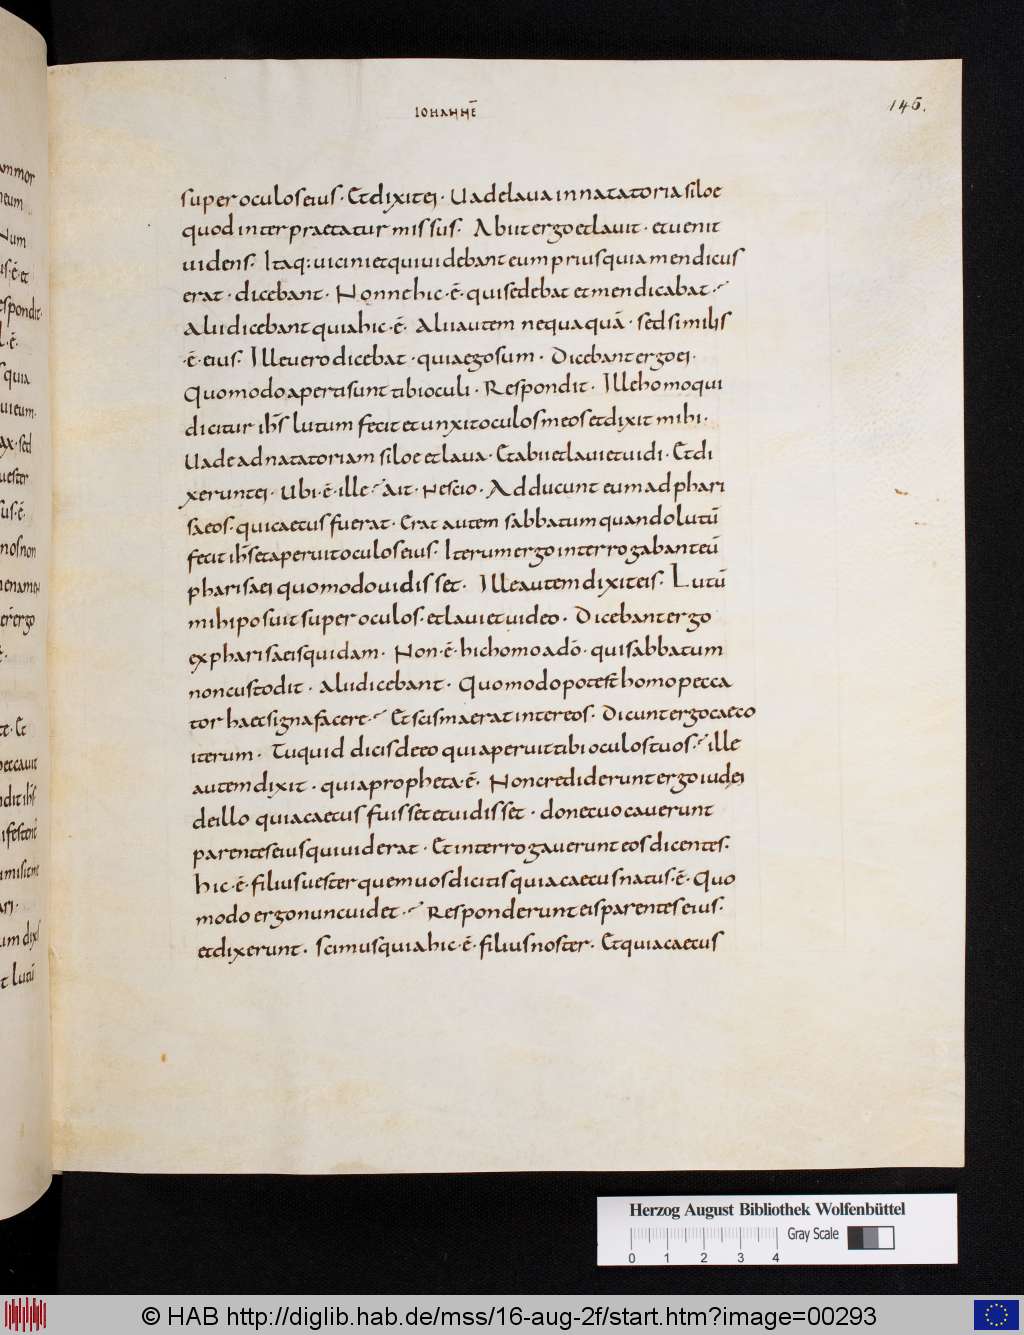 IOHANNĒ
145.
super oculos eius · Et dixit ei · Uade laua in natatoria siloe
quod interpraetatur missus · Abiit ergo et lauit · et uenit
uidens · Itaq: uicini et qui uidebant eum prius quia mendicus
erat · dicebant · Nonne hic · ē · qui sedebat et mendicabat ·
Alii dicebant quia hic · ē · Alii autem nequaquā · sed similis
· ē · eius · Ille uero dicebat · quia ego sum · Dicebant ergo ei ·
Quomodo aperti sunt tibi oculi · Respondit · Ille homo qui
dicitur ih̄s lutum fecit et unxit oculos meos et dixit mihi ·
Uade ad natatoriam siloe et laua · Et abii et laui et uidi · Et di
xerunt ei · Ubi · ē · ille · ait · Nescio · Adducunt eum ad phari
saeos · qui caecus fuerat · Erat autem sabbatum quando lutū
fecit ih̄s et aperuit oculos eius · Iterum ergo interrogabant eū
pharisaei quomodo uidisset · Ille autem dixit eis · Lutū
mihi posuit super oculos · et laui et uideo · Dicebant ergo
ex pharisaeis quidam · Non · ē · hic homo a dō · qui sabbatum
non custodit · alii dicebant · Quomodo potest homo pecca
tor haec signa facere · Et scisma erat inter eos · Dicunt ergo caeco
iterum · Tu quid dicis de eo qui aperuit tibi oculos tuos · ille
autem dixit · quia propheta · ē · Non crediderunt ergo iudei
de illo quia caecus fuisset et uidisset · donec uocauerunt
parentes eius qui uiderat · Et interrogauerunt eos dicentes ·
hic · ē · filius uester quem uos dicitis quia caecus natus · ē · Quo
modo ergo nunc uidet · Responderunt eis parentes eius ·
et dixerunt · scimus quia hic · ē · filius noster · Et quia caecus
Herzog August Bibliothek Wolfenbüttel
Gray Scale
0 1 2 3 4
© HAB http://diglib.hab.de/mss/16-aug-2f/start.htm?image=00293